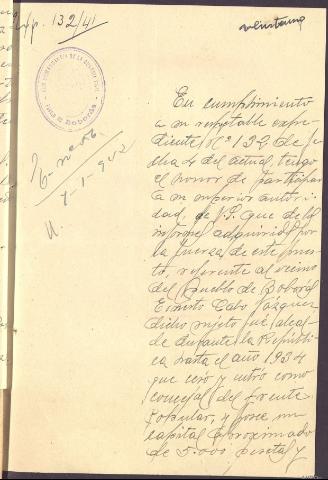 Exp. 132/41
Boborás
En cumplimiento
a su respetable expe-
diente Nº 132 de fe-
cha 4 del actual, tengo
el honor de participar
a su superior autori-
dad, de V. que de los
informes adquiridos por
la fuerza de este pues-
to, referente al vecino
del Pueblo de Boborás
Ernesto Cabo Vázquez
dicho sujeto fue alcal-
de durante la Repúbli-
ca hasta el año 1934
que cesó y entró como
concejal del Frente
Popular, y posee un
capital aproximado
de 5.000 pesetas y